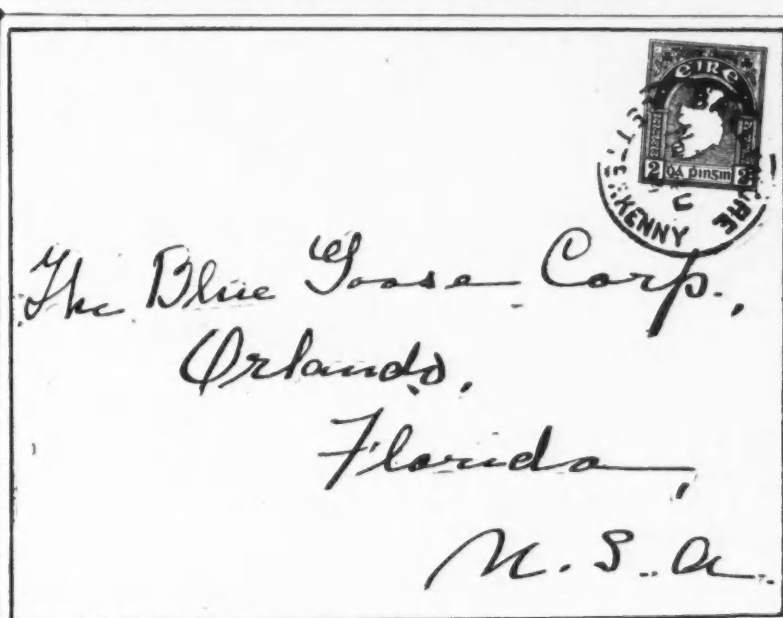 EIRE
2 DÁ PINSIN 2
KENNY
The Blue Goose Corp.,
Orlando,
Florida,
U.S.A.